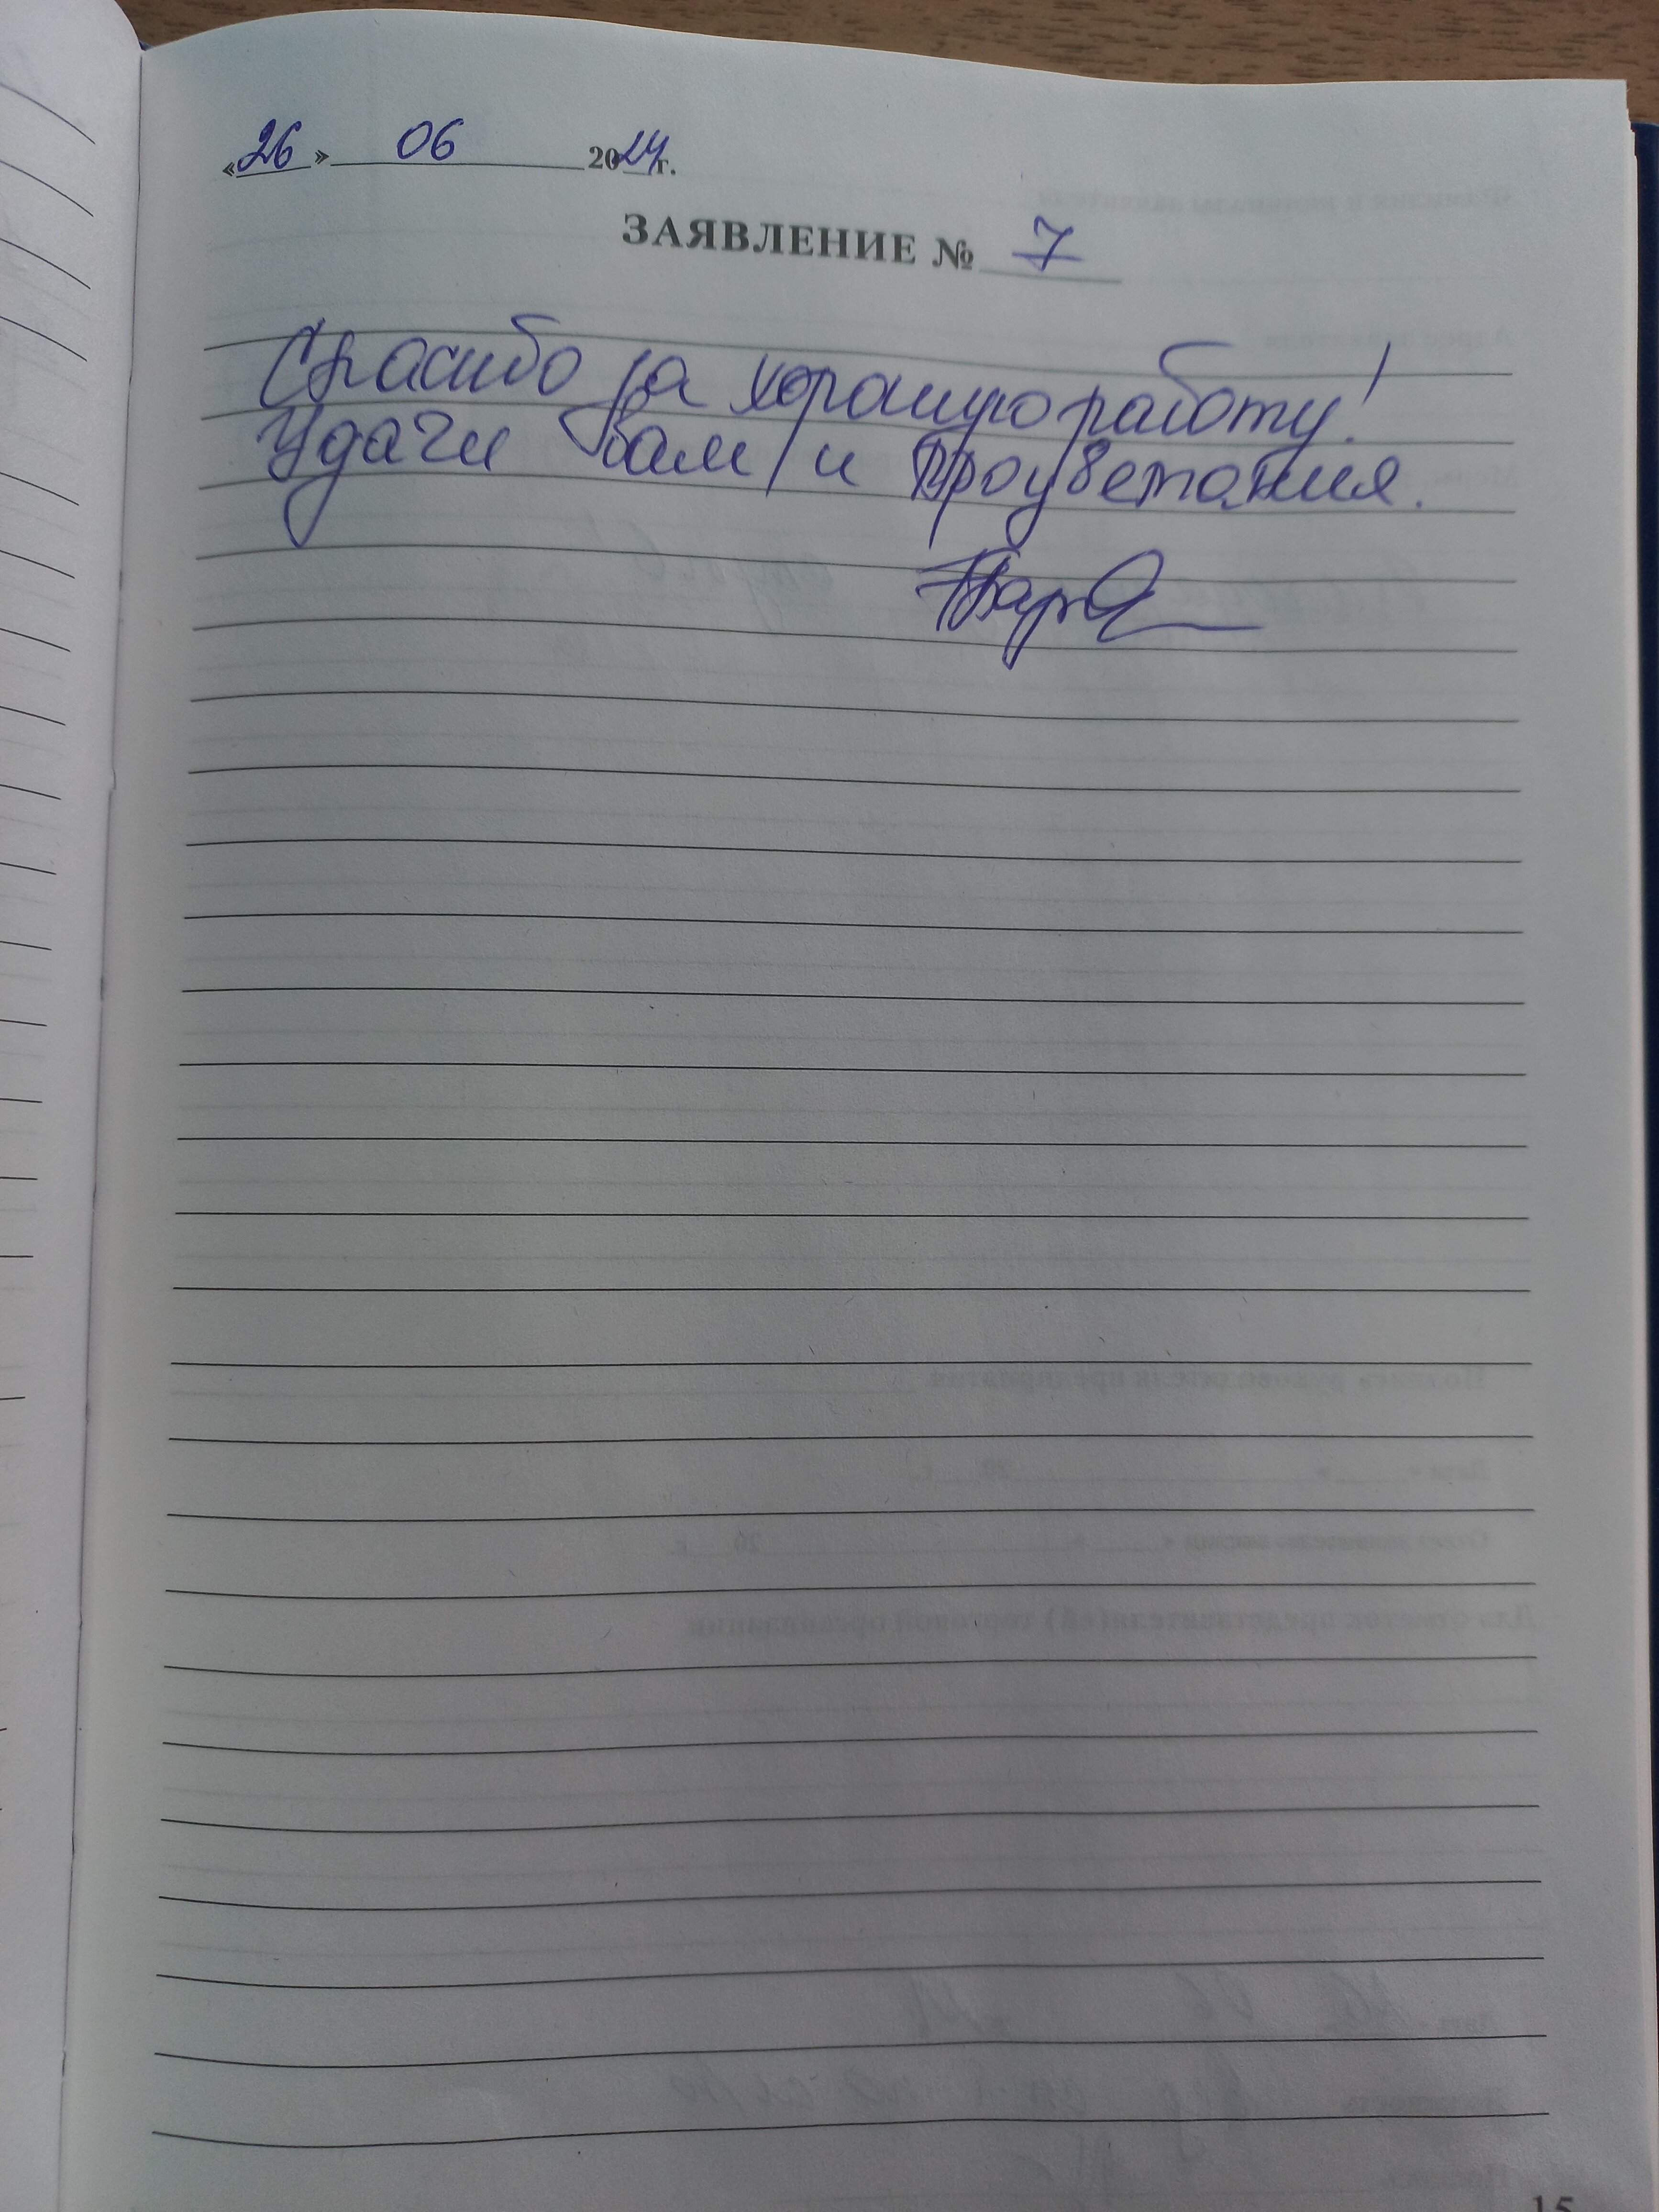 «26» 06 2024г.
ЗАЯВЛЕНИЕ № 7
Спасибо за хорошую работу!
Удачи Вам и Процветания.
15